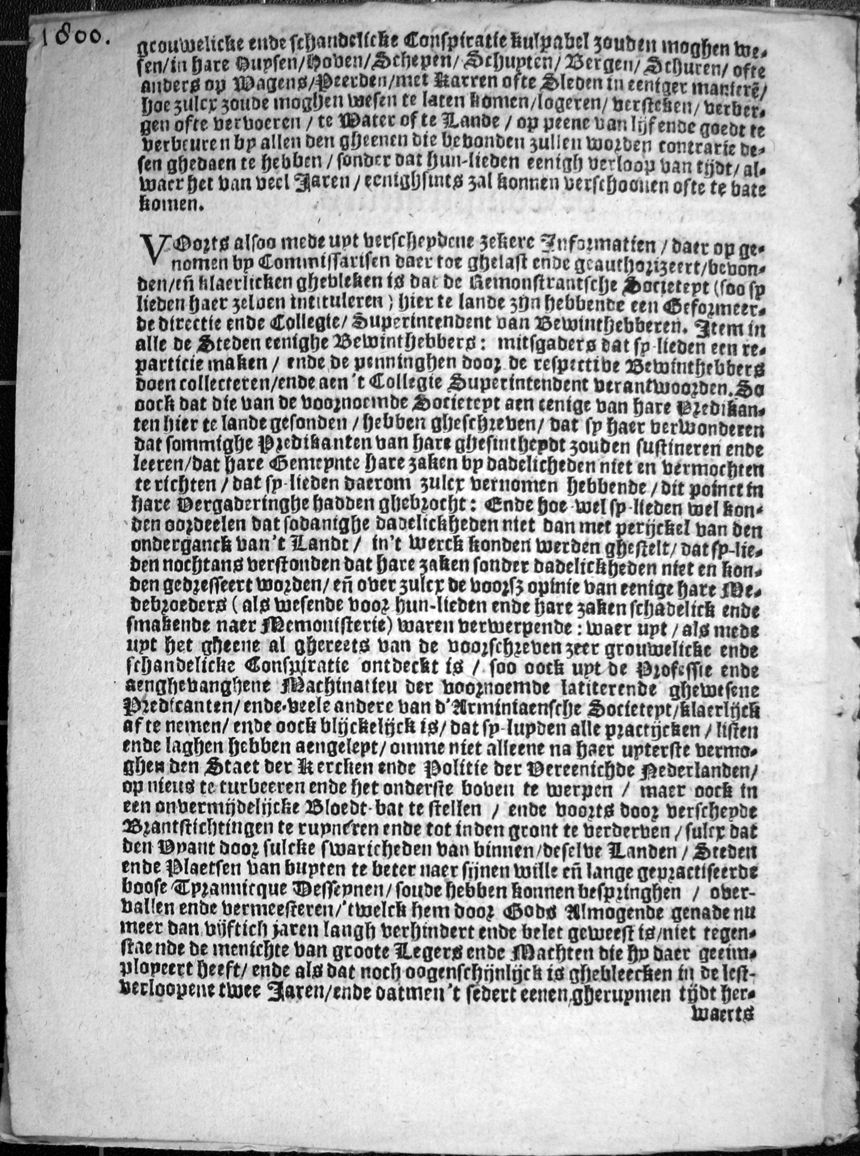 1800.
grouwelicke ende schandelicke Conspiratie kulpabel zouden moghen we-
sen/in hare Huysen/Hoven/Schepen/Schuyten/Bergen/Schuren/ofte
anders op Wagens/Peerden/met Karren ofte Sleden in eeniger manierē/
hoe zulcx zoude moghen wesen te laten komen/logeren/versteken/verber-
gen ofte vervoeren/te Water ofte te Lande/op peene van lijf ende goedt te
verbeuren by allen den gheenen die bevonden zullen worden contrarie de-
sen ghedaen te hebben/sonder dat hun-lieden eenigh verloop van tijdt/al-
waer het van veel Jaren/eenighsints zal konnen verschoonen ofte te bate
komen.
VOorts alsoo mede uyt verscheydene zekere Informatien/daer op ge-
nomen by Commissarisen daer toe ghelast ende geauthorizeert/bevon-
den/eñ klaerlicken ghebleken is dat de Remonstrantsche Societeyt (soo sy
lieden haer zelven intituleren) hier te lande zijn hebbende een Geformeer-
de directie ende Collegie/Superintendent van Bewinthebberen. Item in
alle de Steden eenighe Bewinthebbers: mitsgaders dat sy-lieden een re-
particie maken/ende de penninghen door de respective Bewinthebbers
doen collecteren/ende aen 't Collegie Superintendent verantwoorden. So
oock dat die van de voornoemde Societeyt aen eenige van hare Predikan-
ten hier te lande gesonden/hebben gheschreven/dat sy haer verwonderen
dat sommighe Predikanten van hare ghesintheydt zouden sustineren ende
leeren/dat hare Gemeynte hare zaken by dadelicheden niet en vermochten
te richten/dat sy-lieden daerom zulcx vernomen hebbende/dit poinct in
hare Vergaderinghe hadden ghebrocht: Ende hoe-wel sy-lieden wel kon-
den oordeelen dat sodanighe dadelickheden niet dan met perijckel van den
onderganck van 't Landt/in 't werck konden werden ghestelt/dat sy-lie-
den nochtans verstonden dat hare zaken sonder dadelickheden niet en kon-
den gedresseert worden/eñ over zulcx de voorsz opinie van eenige hare Me-
debroeders (als wesende voor hun-lieden ende hare zaken schadelick ende
smakende naer Memonisterie) waren verwerpende: waer uyt/als mede
uyt het gheene al ghereets van de voorschreven zeer grouwelicke ende
schandelicke Conspiratie ontdeckt is/soo oock uyt de Professie ende
aenghevanghene Machinatieu der voornoemde latiterende ghewesene
Predicanten/ende veele andere van d'Arminiaensche Societeyt/klaerlijck
af te nemen/ende oock blijckelijck is/dat sy-luyden alle practijcken/listen
ende laghen hebben aengeleyt/omme niet alleene na haer uyterste vermo-
ghen den Staet der Kercken ende Politie der Vereenichde Nederlanden/
op nieus te turbeeren ende het onderste boven te werpen/maer oock in
een onvermijdelijcke Bloedt-bat te stellen/ende voorts door verscheyde
Brantstichtingen te ruyneren ende tot inden gront te verderven/sulcx dat
den Vyant door sulcke swaricheden van binnen/deselve Landen/Steden
ende Plaetsen van buyten te beter naer sijnen wille eñ lange gepractiseerde
boose Tyrannicque Desseynen/soude hebben konnen bespringhen/over-
vallen ende vermeesteren/'twelck hem door Gods Almogende genade nu
meer dan vijftich jaren langh verhindert ende belet geweest is/niet tegen-
staende de menichte van groote Legers ende Machten die hy daer geeim-
ployeert heeft/ende als dat noch oogenschijnlijck is ghebleecken in de lest-
verloopene twee Jaren/ende datmen 't sedert eenen gheruymen tijdt her-
waerts